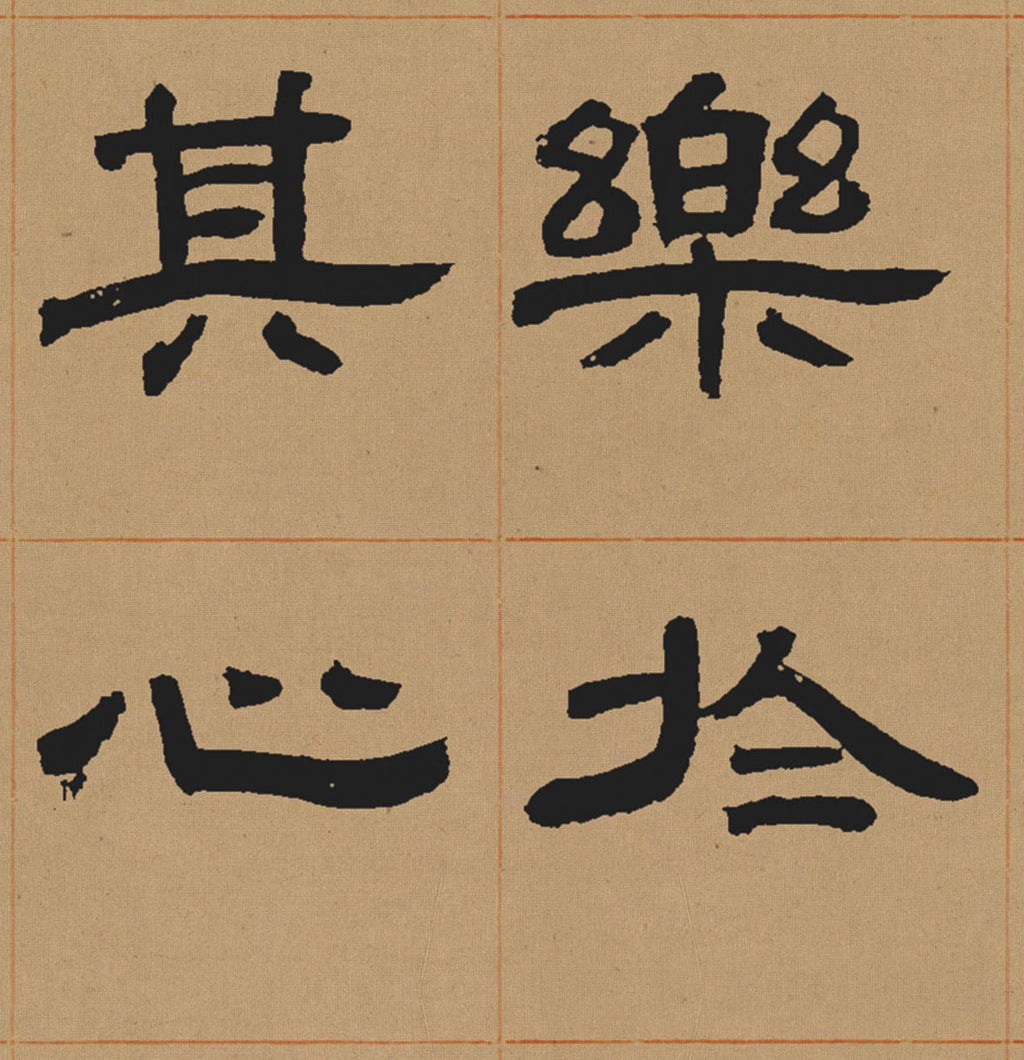 樂於
其心